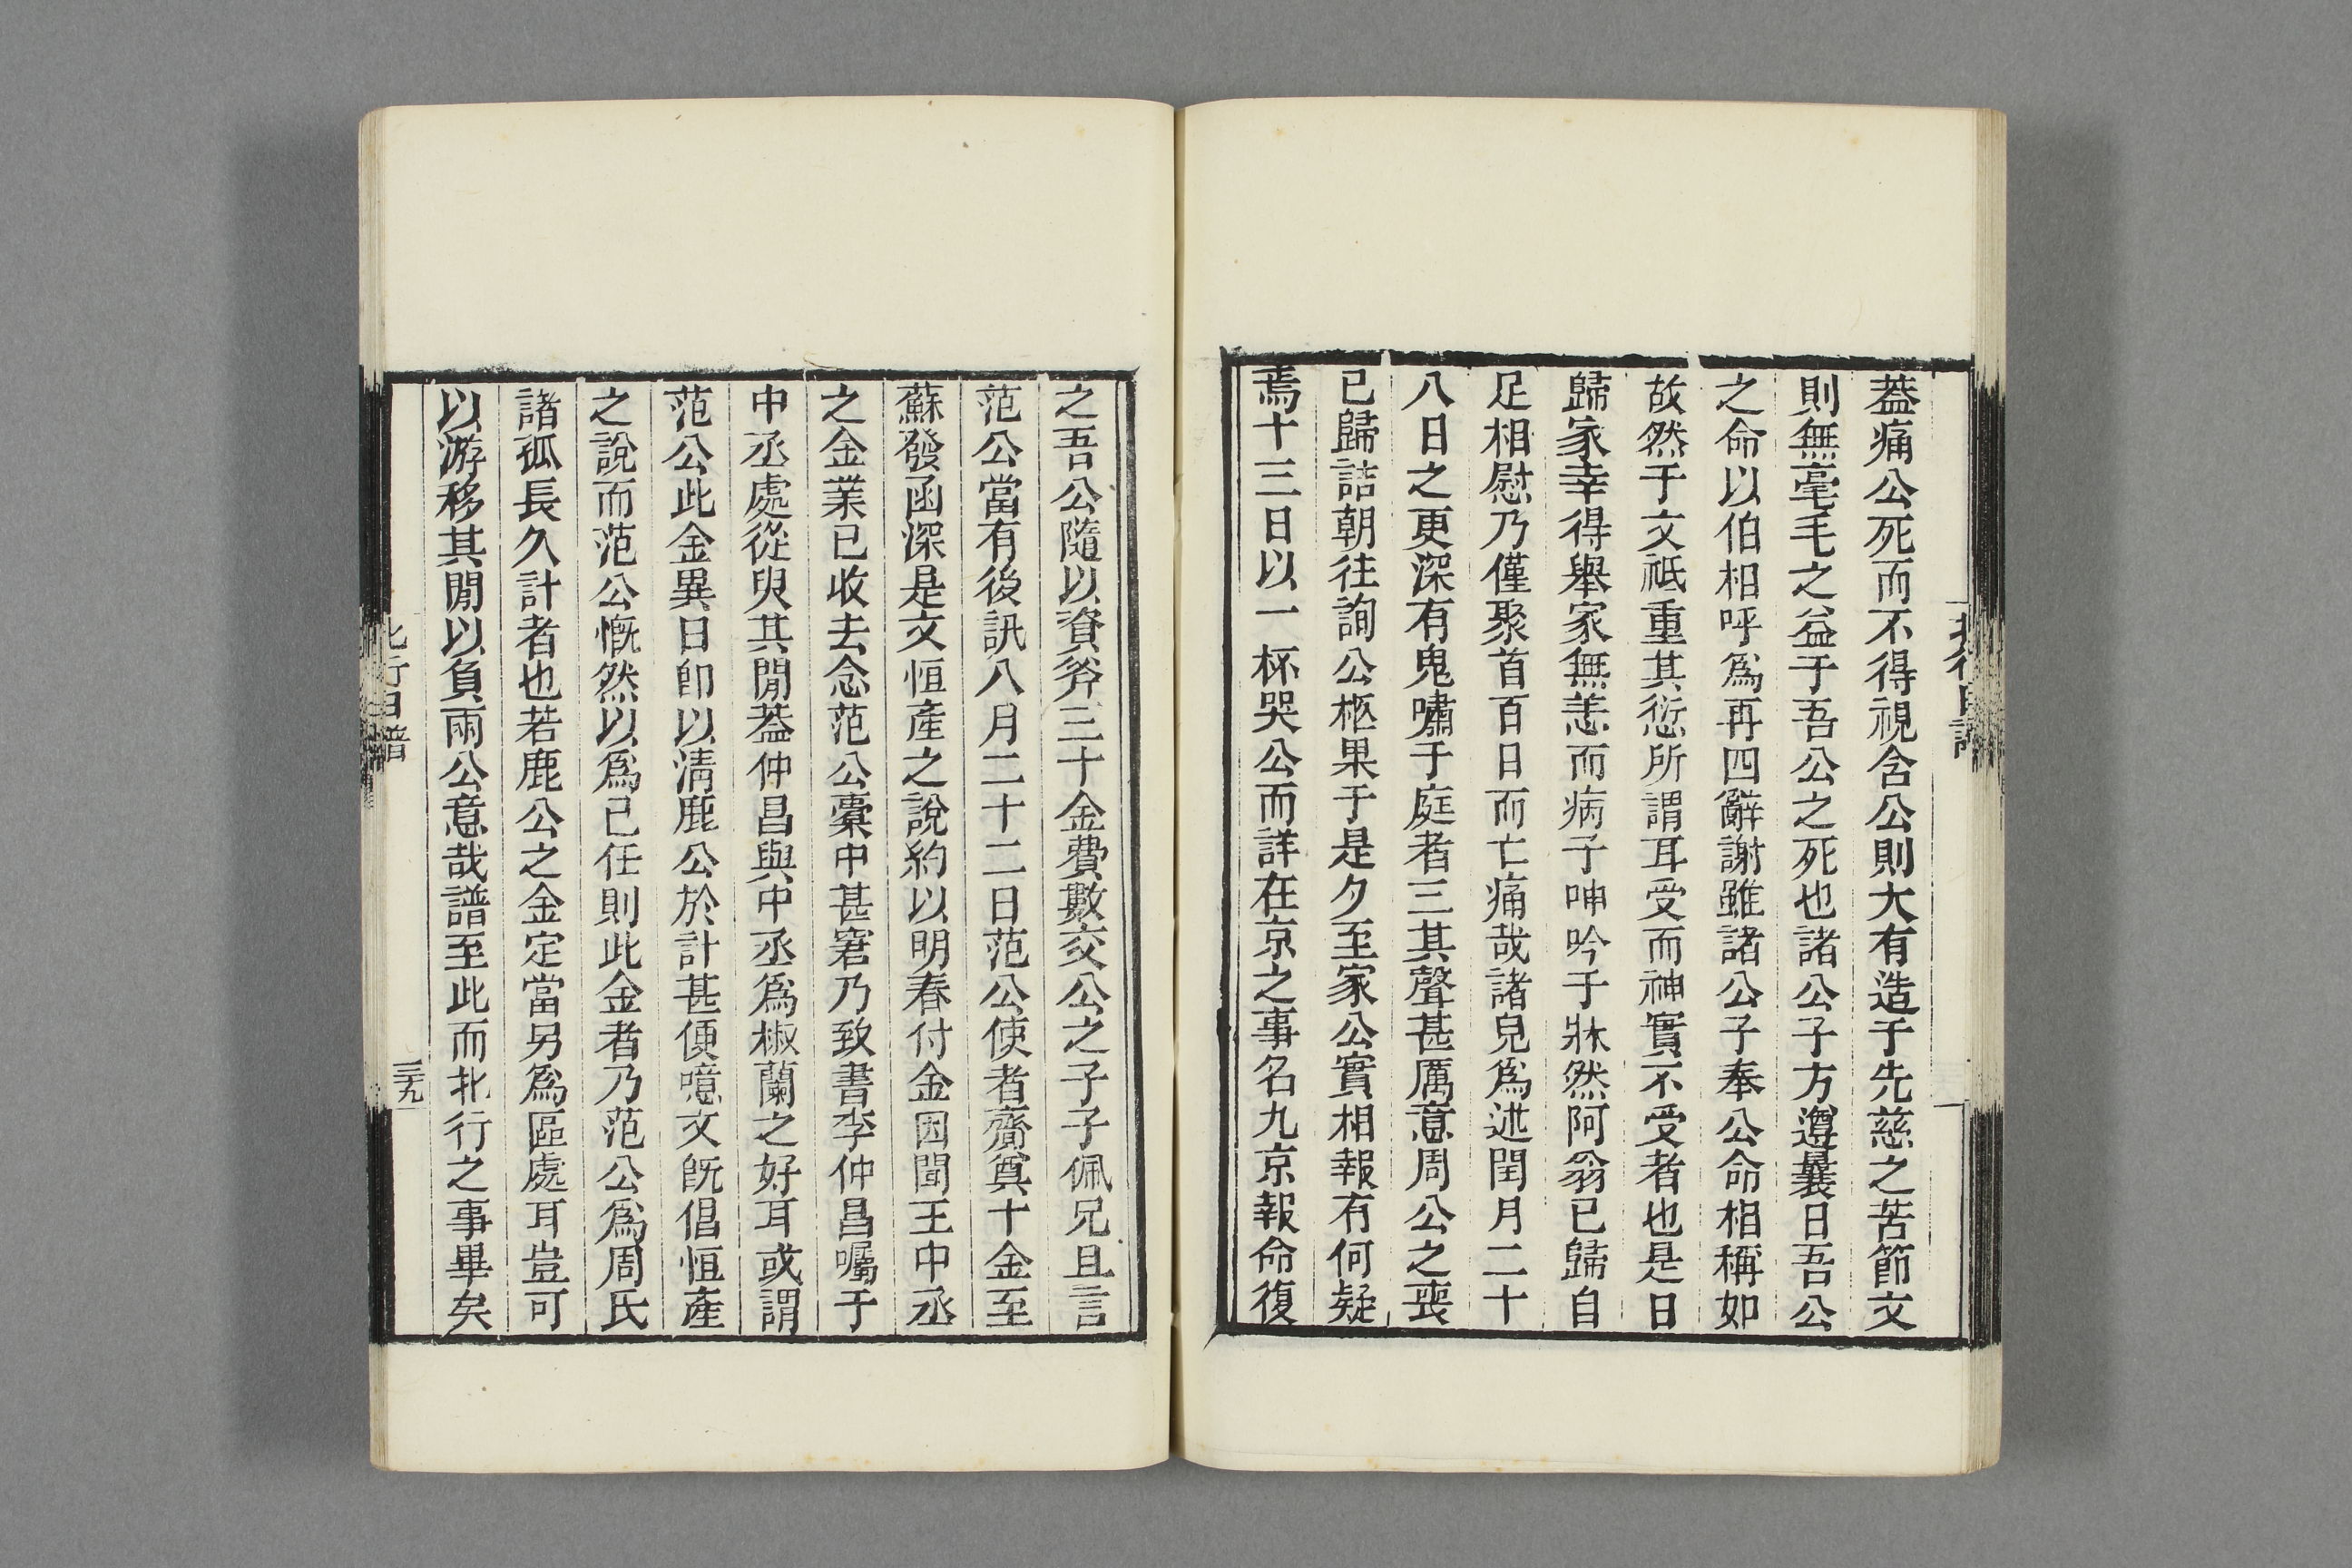 蓋痛公死而不得視含公則大有造于先慈之苦節文
則無毫毛之益于吾公之死也諸公子方遵曩日吾公
之命以伯相呼為再四辭謝雖諸公子奉公命相稱如
故然于文祗重其愆所謂耳受而神實不受者也是日
歸家幸得舉家無恙而病子呻吟于牀然阿翁已歸自
足相慰乃僅聚首百日而亡痛哉諸兒為述閏月二十
八日之更深有鬼嘯于庭者三其聲甚厲意周公之喪
已歸詰朝往詢公柩果于是夕至家公實相報有何疑
焉十三日以一杯哭公而詳在京之事名九京報命復
之吾公隨以資斧三十金費數交公之子子佩兄且言
范公當有後訊八月二十二日范公使者齎奠十金至
蘇發函深是文恒產之說約以明春付金因聞王中丞
之金業已收去念范公橐中甚窘乃致書李仲昌囑于
中丞處從臾其閒蓋仲昌與中丞為椒蘭之好耳或謂
范公此金異日卽以淸鹿公於計甚便噫文旣倡恒產
之說而范公慨然以為已任則此金者乃范公為周氏
諸孤長久計者也若鹿公之金定當另為區處耳豈可
以游移其閒以負兩公意哉譜至此而北行之事畢矣
北行日譜
三九